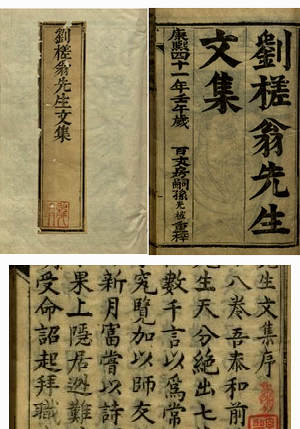 劉槎翁先生文集
劉槎翁先生
文集
康熙四十一年壬午歲
百文房嗣孫
重梓
先生文集序
八卷吾泰和前
生天分絶出七
數千言以爲常
究覽加以師友
新月富嘗以詩
果上隱居遯難
受命詔起拜職